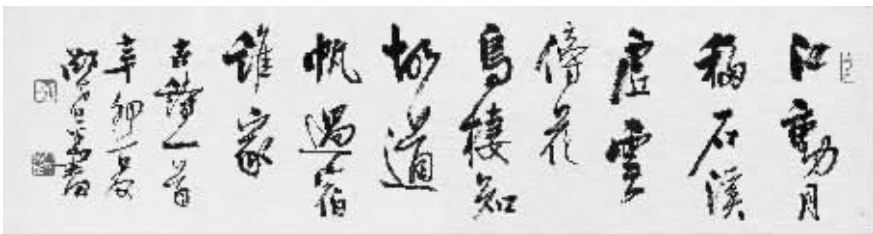 江動月
移石溪
虛雲
傍花
鳥棲知
故道
帆過宿
誰家
古詩一首
辛卯夏
書